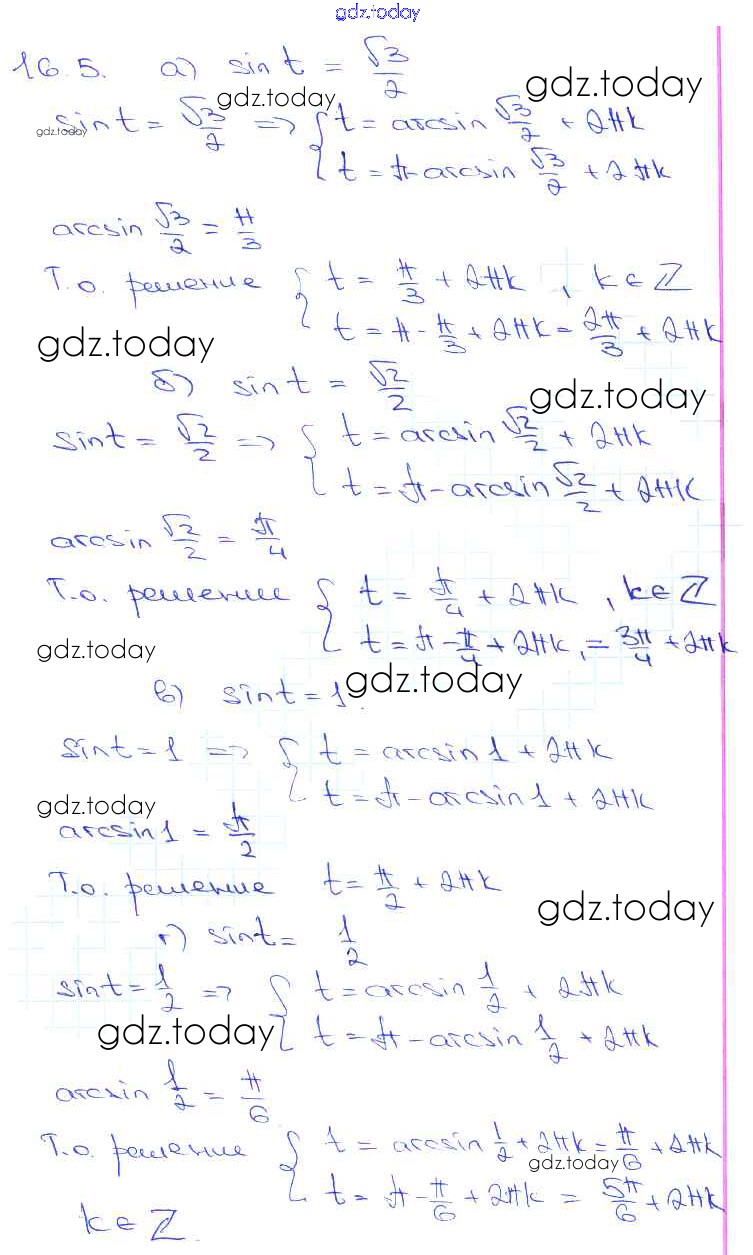 gdz.today
16.5. а) sin t = √3/2
gdz.today gdz.today
gdz.today
sin t = √3/2 => { t = arcsin √3/2 + 2πk
t = π - arcsin √3/2 + 2πk
arcsin √3/2 = π/3
Т.о. решение { t = π/3 + 2πk , k ∈ Z
t = π - π/3 + 2πk = 2π/3 + 2πk
gdz.today
б) sin t = √2/2
gdz.today
sin t = √2/2 => { t = arcsin √2/2 + 2πk
t = π - arcsin √2/2 + 2πk
arcsin √2/2 = π/4
Т.о. решение { t = π/4 + 2πk , k ∈ Z
t = π - π/4 + 2πk, = 3π/4 + 2πk
gdz.today
в) sin t = 1.
gdz.today
sin t = 1 => { t = arcsin 1 + 2πk
t = π - arcsin 1 + 2πk
gdz.today
arcsin 1 = π/2
Т.о. решение t = π/2 + 2πk
gdz.today
г) sin t = 1/2
sin t = 1/2 => { t = arcsin 1/2 + 2πk
t = π - arcsin 1/2 + 2πk
gdz.today
arcsin 1/2 = π/6
Т.о. решение { t = arcsin 1/2 + 2πk = π/6 + 2πk
gdz.today
t = π - π/6 + 2πk = 5π/6 + 2πk
k ∈ Z.